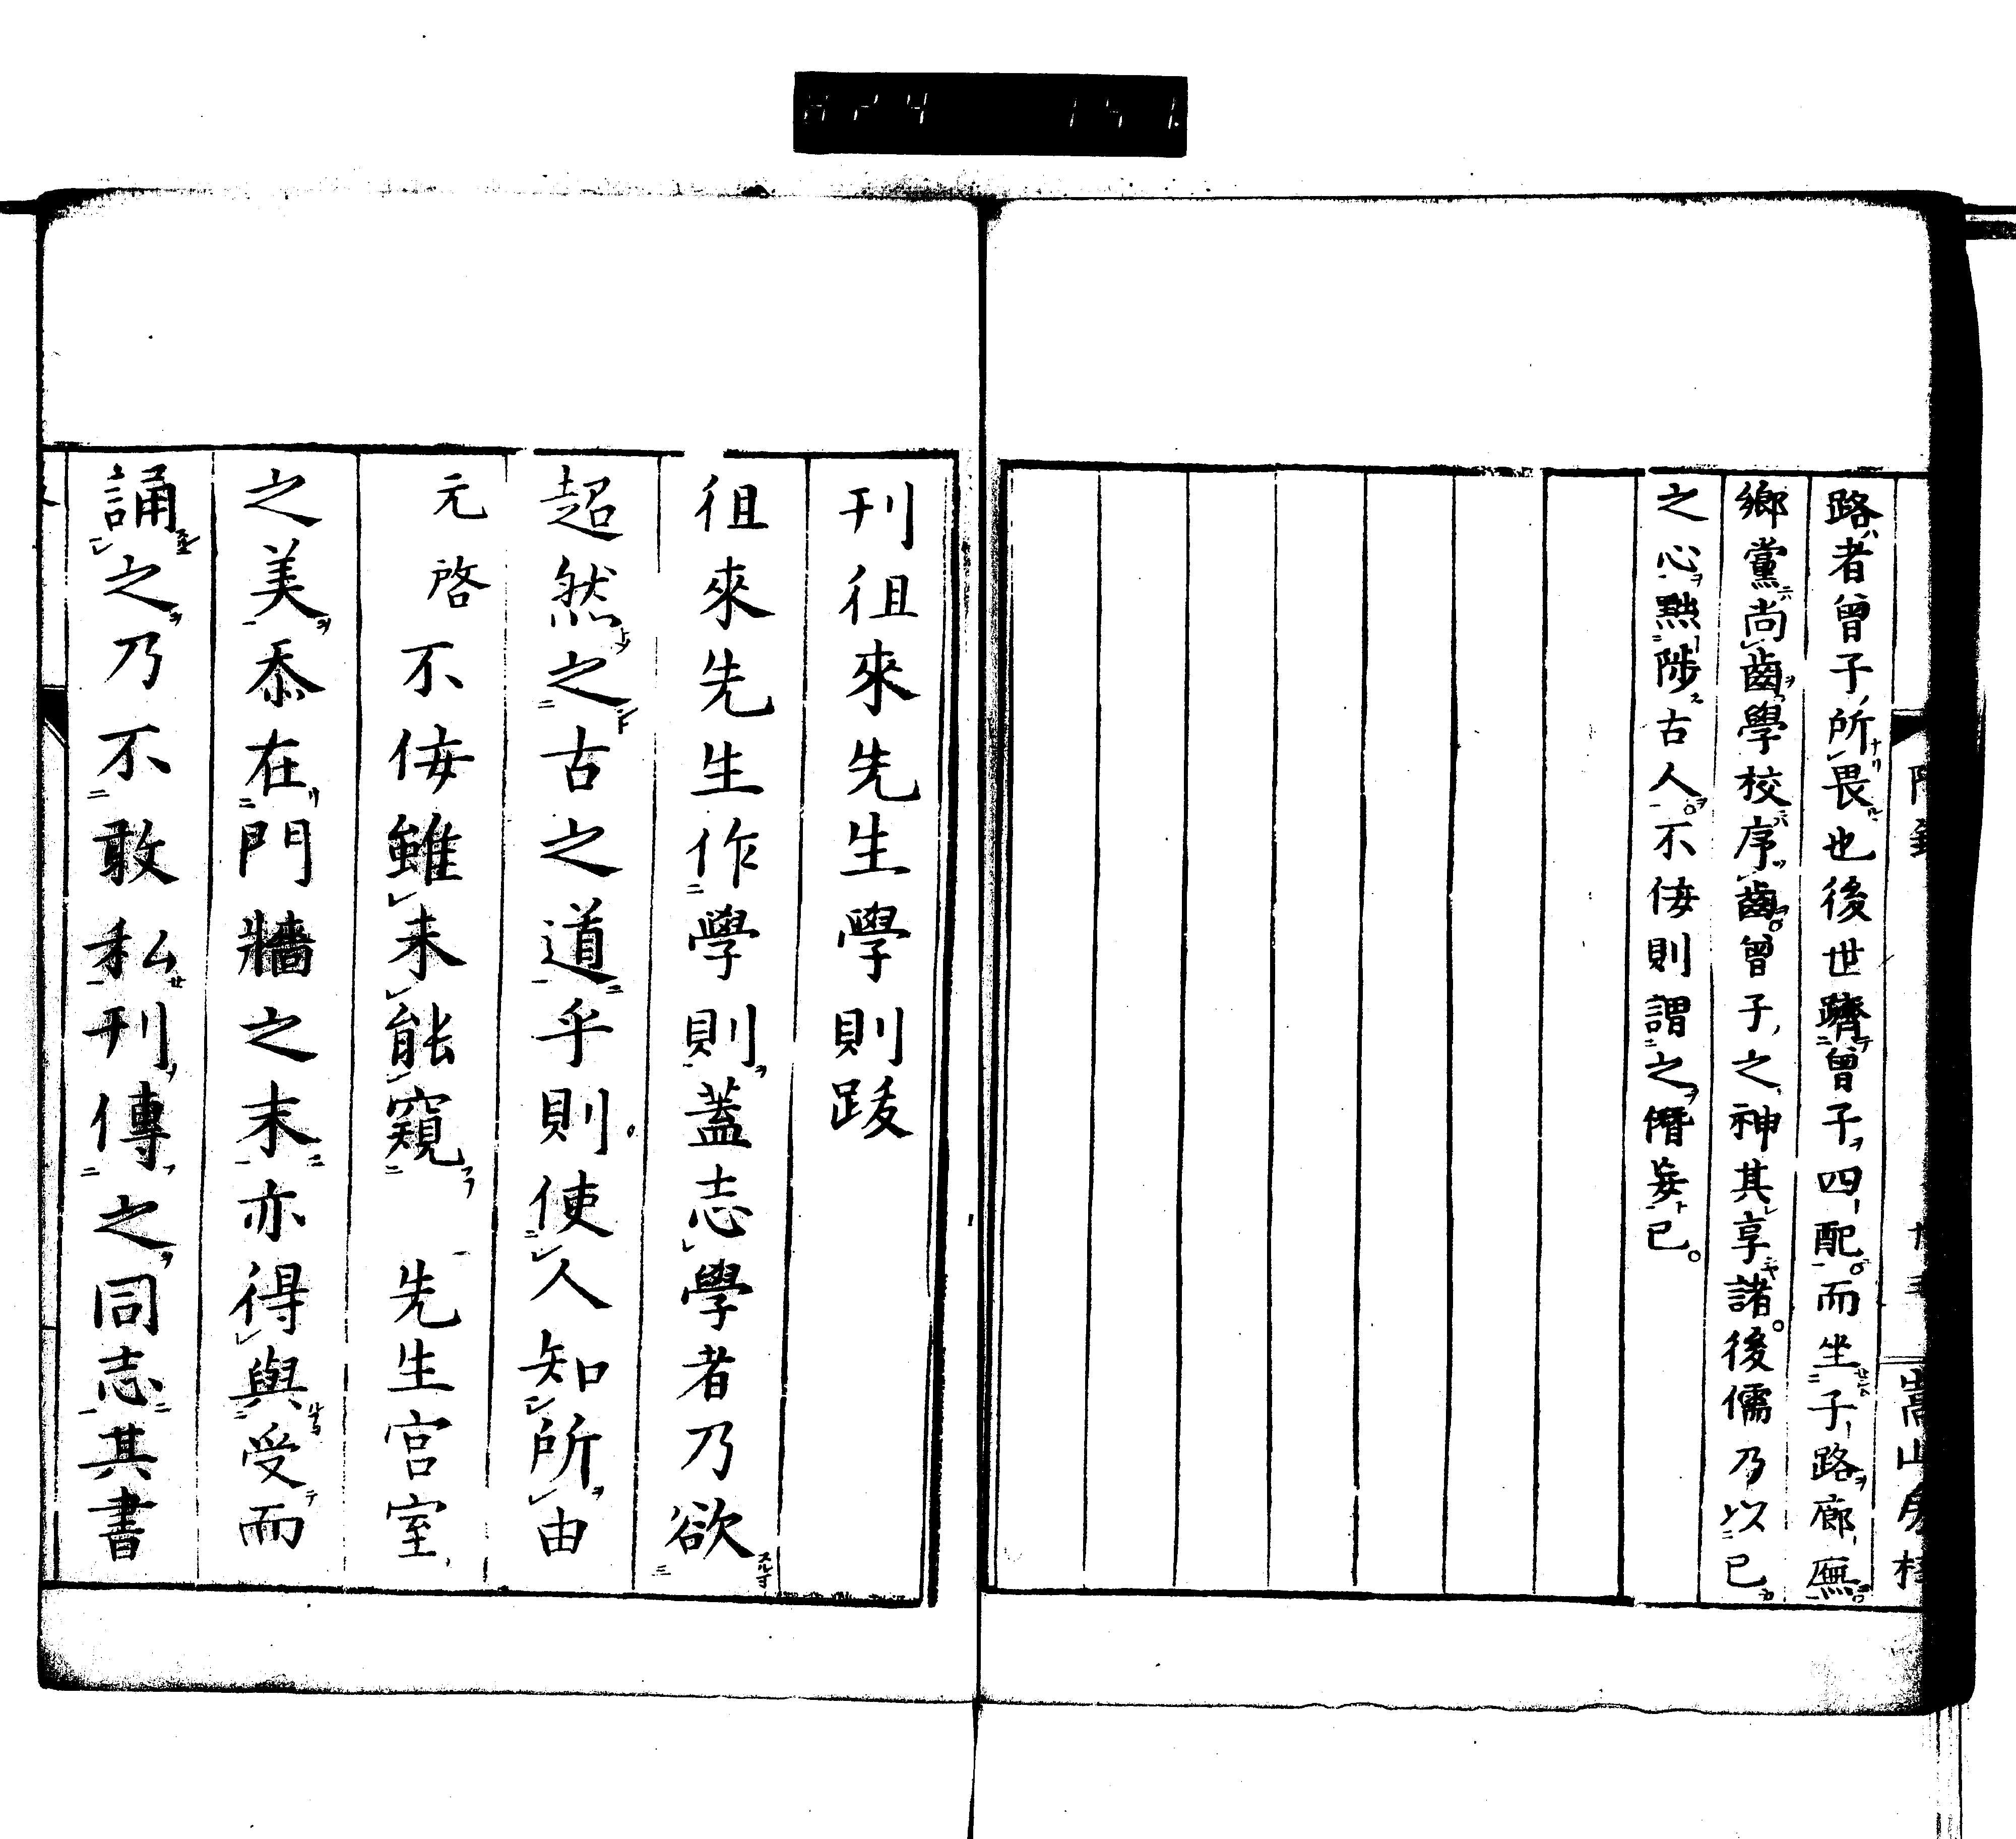 路者曾子所畏也後世躋曾子四配而坐子路廊廡
鄉黨尚齒學校序齒曾子之神其享諸後儒乃以已
之心黜陟古人不佞則謂之僭妄已
嵩山房
刊徂來先生學則跋
徂來先生作學則蓋志學者乃欲
超然之古之道乎則使人知所由
元啓不佞雖未能窺 先生宮室
之美忝在門牆之末亦得與受而
誦之乃不敢私刊傳之同志其書